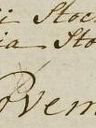 ii Stock
ia Sto
ovem